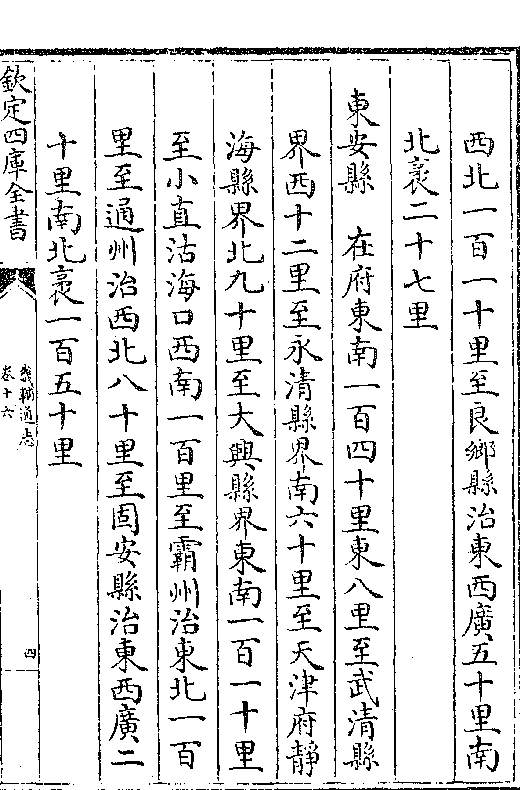 西北一百一十里至良鄉縣治東西廣五十里南
北袤二十七里
東安縣　在府東南一百四十里東八里至武清縣
界西十二里至永清縣界南六十里至天津府靜
海縣界北九十里至大興縣界東南一百一十里
至小直沽海口西南一百里至霸州治東北一百
里至通州治西北八十里至固安縣治東西廣二
十里南北袤一百五十里
欽定四庫全書
畿輔通志
卷十六
四